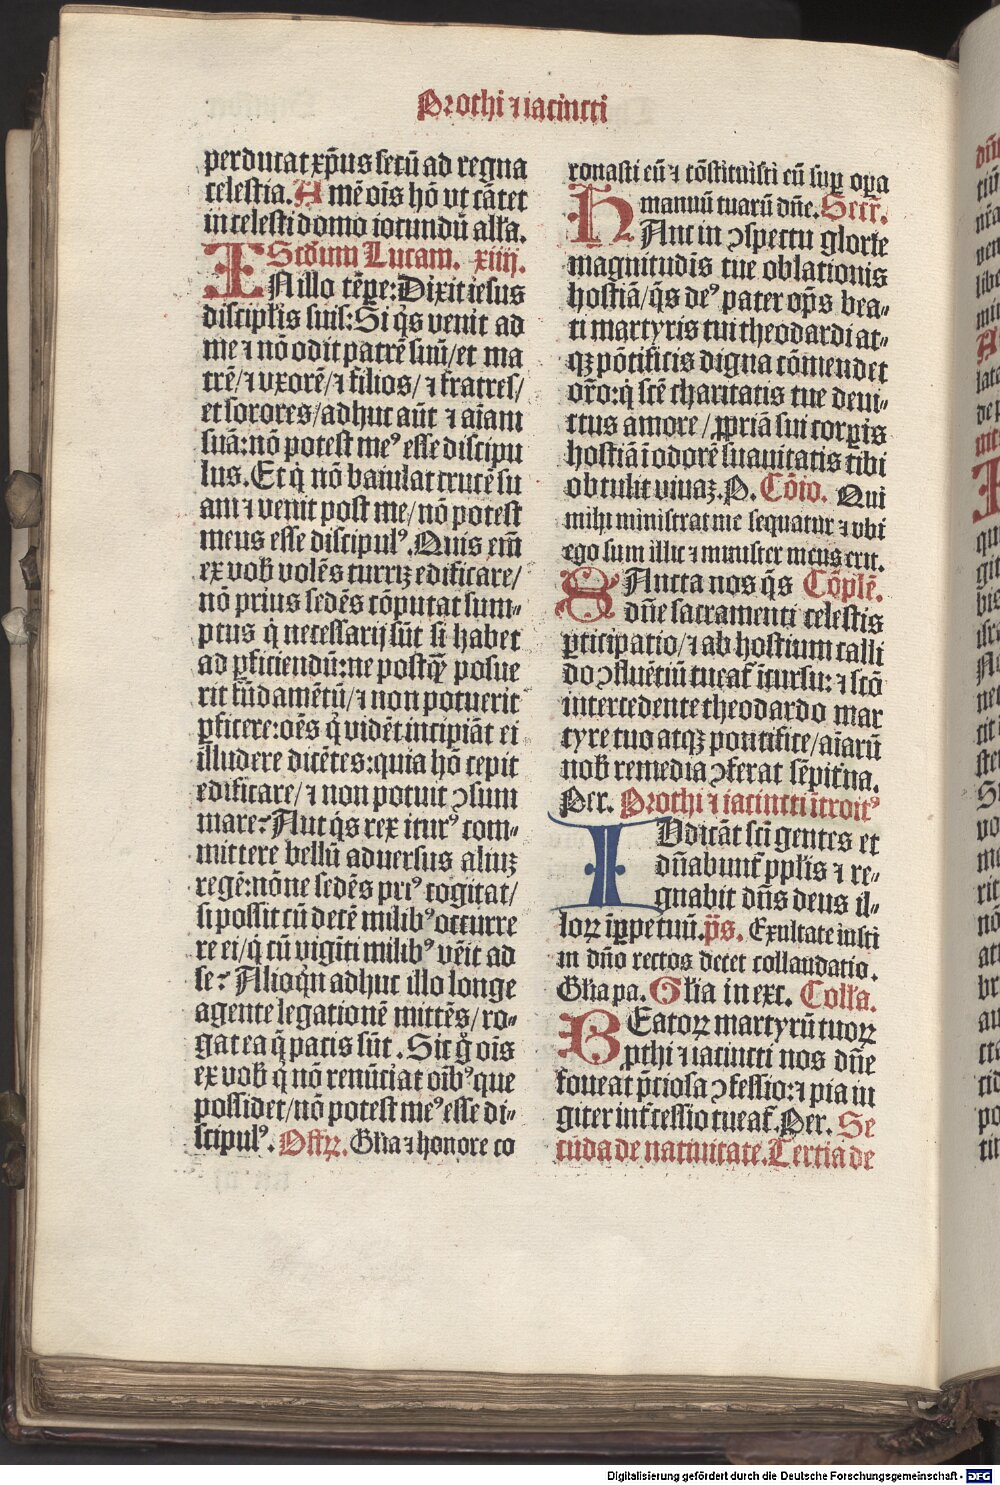 Prothi ⁊ iacincti
perducat xp̄us secū ad regna
celestia. Amē oīs hō vt cātet
in celesti domo iocundū alľa.
Scďum Lucam. xiiij.
IN illo tēpe: Dixit iesus
discipľis suis: Si q̄s venit ad
me ⁊ nō odit patrē suū/et ma
trē/⁊ vxorē/⁊ filios/⁊ fratres/
et sorores/adhuc aūt ⁊ aīam
suā: nō potest meꝰ esse discipu
lus. Et q̇ nō baiulat crucē su
am ⁊ venit post me/nō potest
meus esse discipulꝰ. Quis em̄
ex vob̄ volēs turrīꝫ edificare/
nō prius sedēs cōputat sum⸗
ptus q̇ necessarij sūt si habet
ad ꝑficiendū: ne postq̄ꝫ posue
rit fūdamētū/⁊ non potuerit
ꝑficere: oēs q̇ vidēt incipiāt ei
illudere dicētes: quia hō cepit
edificare/⁊ non potuit ↄsum
mare? Aut q̄s rex iturꝰ com⸗
mittere bellū aduersus aliuꝫ
regē: nōne sedēs priꝰ cogitat/
si possit cū decē milibꝰ occurre
re ei/q̇ cū vigīti milibꝰ vēit ad
se? Alioq̇n adhuc illo longe
agente legationē mittēs/ro⸗
gat ea q̄ pacis sūt. Sic g̊ oīs
ex vob̄ q̇ nō renūciat oībꝰ que
possidet/nō potest meꝰ esse di⸗
scipulꝰ. Offꝝ. Gľia ⁊ honore co
ronasti eū ⁊ cōstituisti eū suꝑ oꝑa
manuū tuarū dn̄e. Secr̄.
HAnc in ↄspectu glorie
magnitudīs tue oblationis
hostiā/q̄s deꝰ pater op̄s bea⸗
ti martyris tui theodardi at⸗
qꝫ pōtificis digna cōmendet
or̄o: q̇ scē charitatis tue deui⸗
ctus amore/ꝓpriā sui corꝑis
hostiā ī odorē suauitatis tibi
obtulit viuaꝫ. P. Cōio. Qui
mihi ministrat me sequatur ⁊ vbi
ego sum illic ⁊ minister meus erit.
SAncta nos q̄s Cōplē.
dn̄e sacramenti celestis
ꝑticipatio/⁊ ab hostium calli
do ↄfluētiū tueat̄ īcursu: ⁊ scō
intercedente theodardo mar
tyre tuo atqꝫ pontifice/aīarū
nob̄ remedia ↄferat sēpit̄na.
Per. Prothi ⁊ iacincti ītroitꝰ
IUdicāt scī gentes et
dn̄abunt̄ ppľis ⁊ re⸗
gnabit dn̄s deus il⸗
loꝝ īꝑpetuū. p̄s. Exultate iusti
in dn̄o rectos decet collaudatio.
Gľia pa. Gľia in exc. Colľa.
BEatoꝝ martyrū tuoꝝ
ꝓthi ⁊ iacincti nos dn̄e
foueat p̄ciosa ↄfessio: ⁊ pia iu
giter int̄cessio tueat̄. Per. Se
cūda de natiuitate. Tertia de
Digitalisierung gefördert durch die Deutsche Forschungsgemeinschaft - DFG